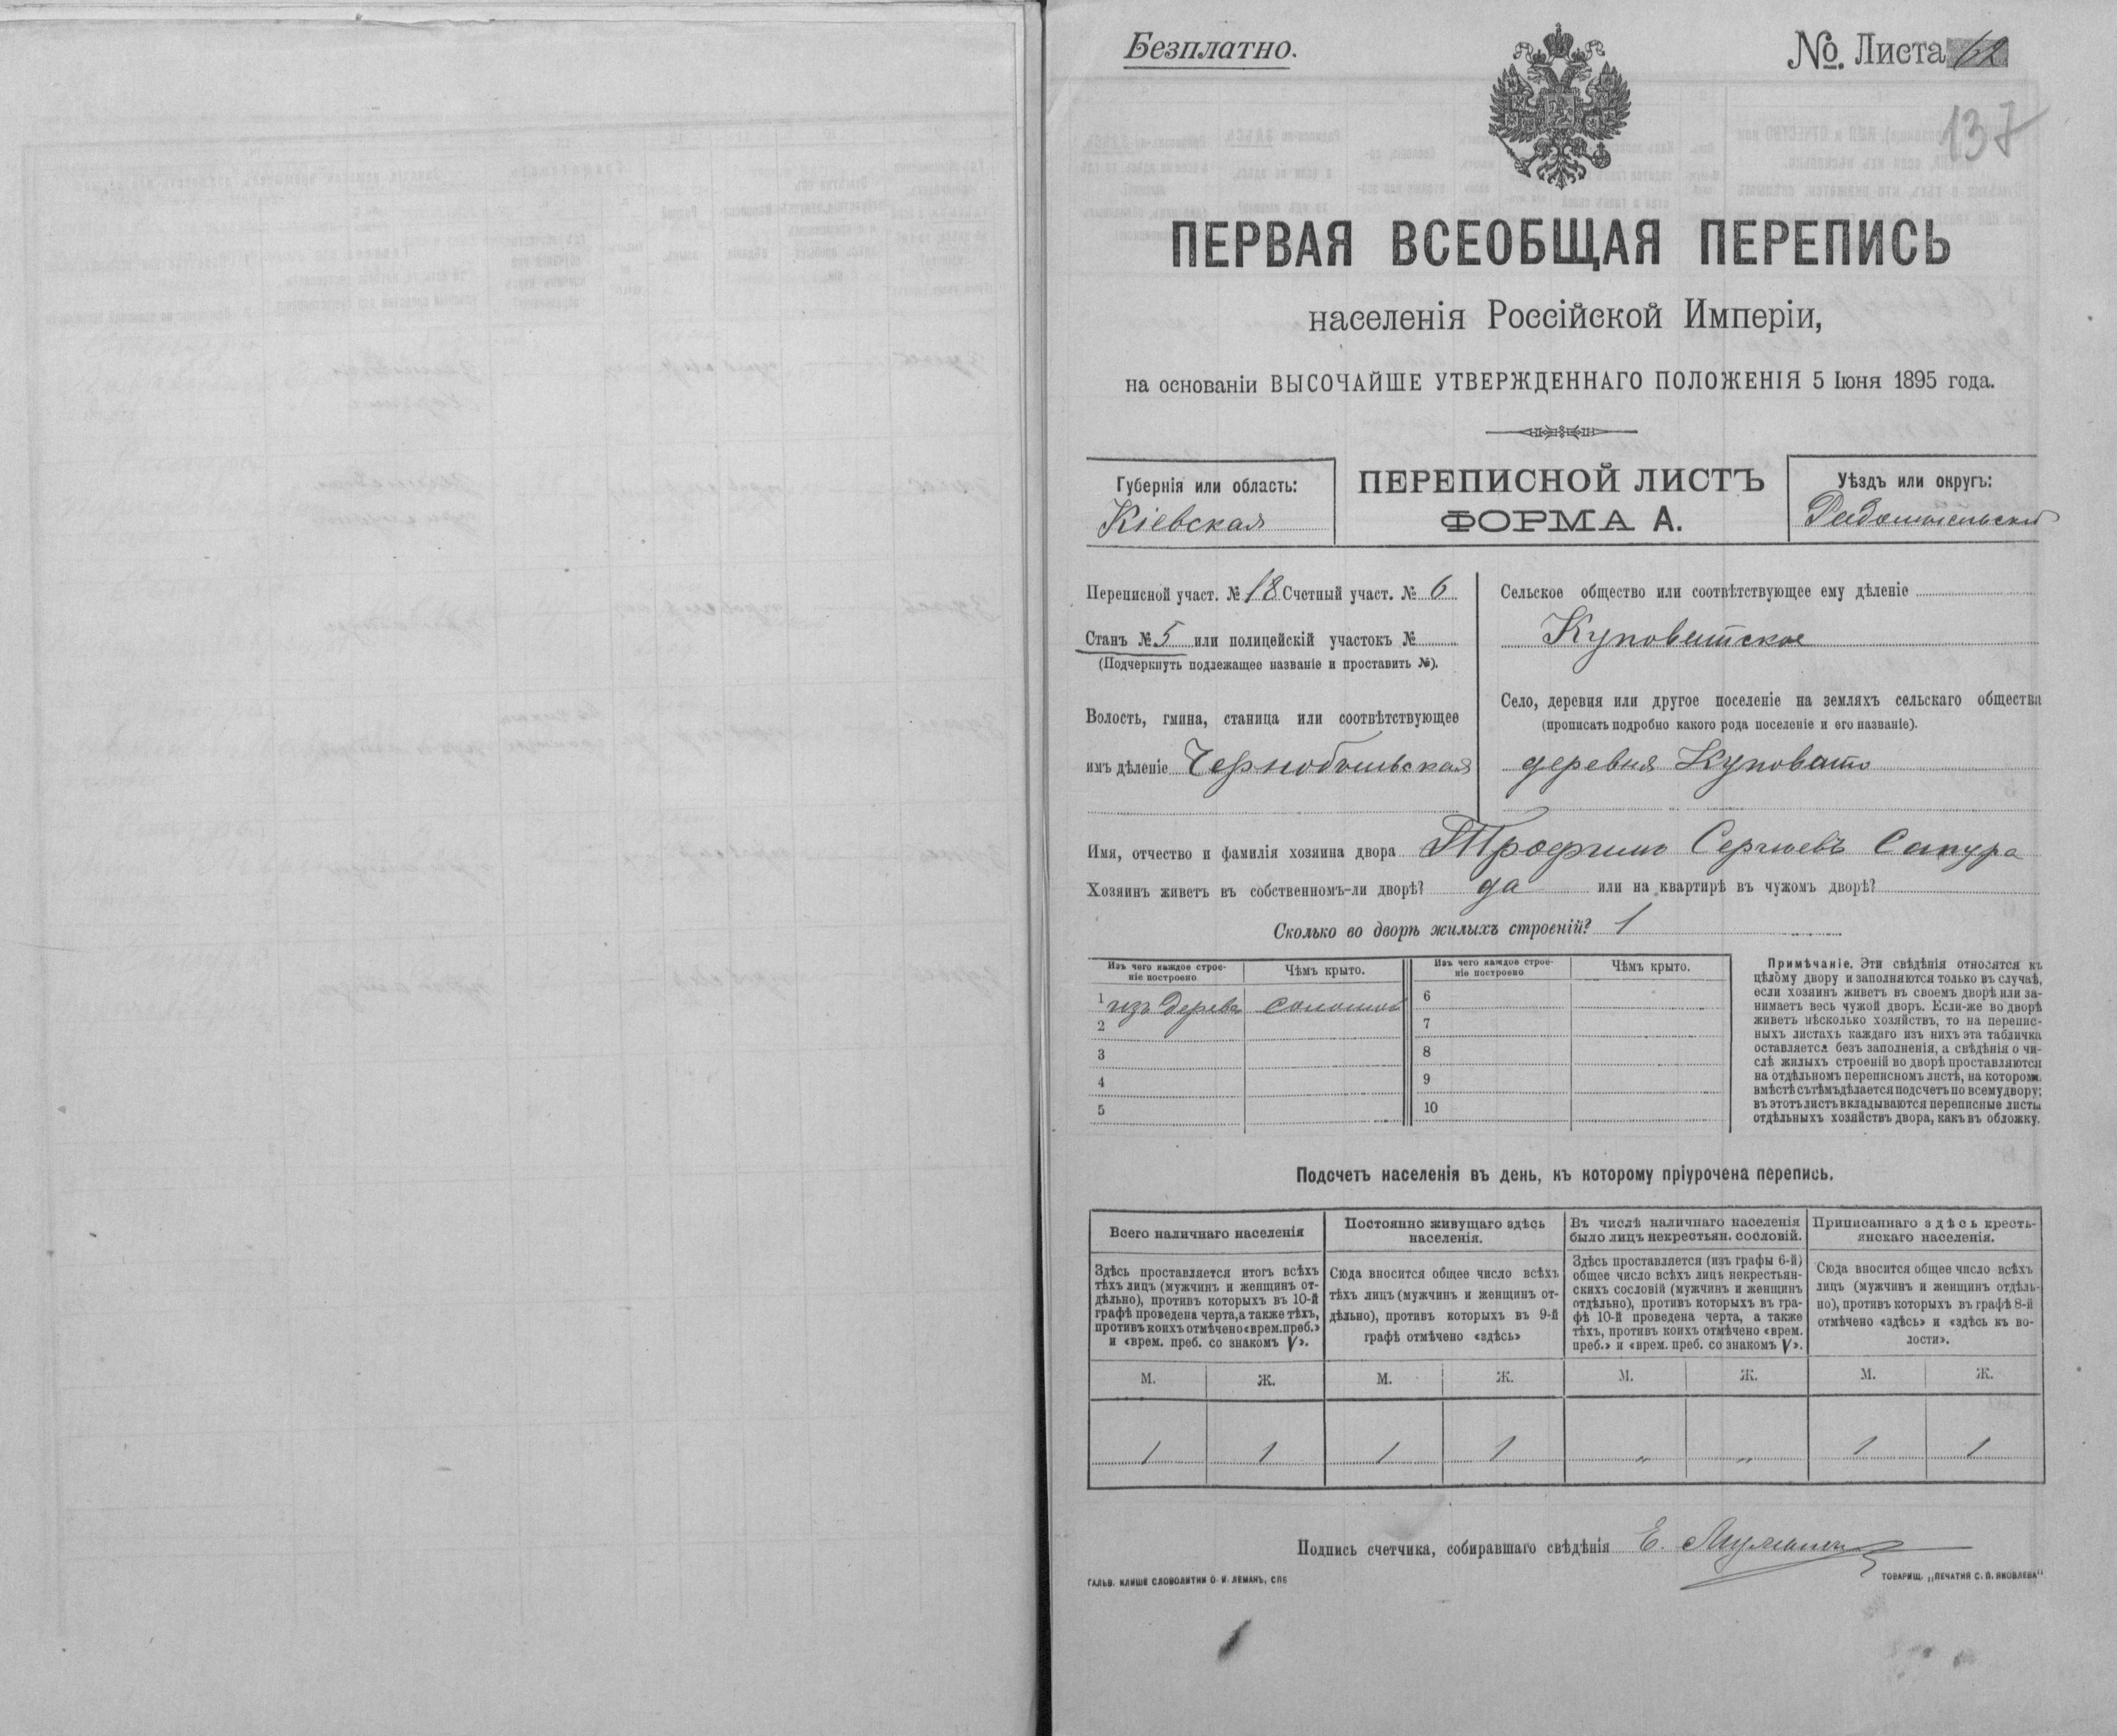 Безплатно.
№. Листа 62
137
ПЕРВАЯ ВСЕОБЩАЯ ПЕРЕПИСЬ
населенія Россійской Имперіи,
на основаніи ВЫСОЧАЙШЕ УТВЕРЖДЕННАГО ПОЛОЖЕНІЯ 5 Іюня 1895 года.
Губернія или область:
Кіевская
ПЕРЕПИСНОЙ ЛИСТЪ
ФОРМА А.
Уѣздъ или округъ:
Радомысльскій
Переписной участ. № 18 Счетный участ. № 6
Станъ № 5 или полицейскій участокъ №
(Подчеркнуть подлежащее названіе и проставить №).
Волость, гмина, станица или соотвѣтствующее
имъ дѣленіе Чернобыльская
Сельское общество или соотвѣтствующее ему дѣленіе
Куповатское
Село, деревня или другое поселеніе на земляхъ сельскаго общества
(прописать подробно какого рода поселеніе и его названіе).
деревня Куповато
Имя, отчество и фамилія хозяина двора Трофимъ Сергѣевъ Сапура
Хозяинъ живетъ въ собственномъ-ли дворѣ? да или на квартирѣ въ чужомъ дворѣ?
Сколько во дворѣ жилыхъ строеній? 1
Изъ чего каждое строе-
ніе построено
Чѣмъ крыто.
Изъ чего каждое строе-
ніе построено
Чѣмъ крыто.
1 изъ дерева соломой
2
3
4
5
6
7
8
9
10
Примѣчаніе. Эти свѣдѣнія относятся къ
цѣлому двору и заполняются только въ случаѣ,
если хозяинъ живетъ въ своемъ дворѣ или за-
нимаетъ весь чужой дворъ. Если-же во дворѣ
живетъ нѣсколько хозяйствъ, то на перепис-
ныхъ листахъ каждаго изъ нихъ эта табличка
оставляется безъ заполненія, а свѣдѣнія о чи-
слѣ жилыхъ строеній во дворѣ проставляются
на отдѣльномъ переписномъ листѣ, на которомъ
вмѣстѣ съ тѣмъ дѣлается подсчетъ по всему двору;
въ этотъ листъ вкладываются переписные листы
отдѣльныхъ хозяйствъ двора, какъ въ обложку.
Подсчетъ населенія въ день, къ которому пріурочена перепись.
Всего наличнаго населенія
Здѣсь проставляется итогъ всѣхъ
тѣхъ лицъ (мужчинъ и женщинъ от-
дѣльно), противъ которыхъ въ 10-й
графѣ проведена черта, а также тѣхъ,
противъ коихъ отмѣчено «врем. преб.»
и «врем. преб. со знакомъ V».
Постоянно живущаго здѣсь
населенія.
Сюда вносится общее число всѣхъ
тѣхъ лицъ (мужчинъ и женщинъ от-
дѣльно), противъ которыхъ въ 9-й
графѣ отмѣчено «здѣсь»
Въ числѣ наличнаго населенія
было лицъ некрестьян. сословій.
Здѣсь проставляется (изъ графы 6-й)
общее число всѣхъ лицъ некрестьян-
скихъ сословій (мужчинъ и женщинъ
отдѣльно), противъ которыхъ въ гра-
фѣ 10-й проведена черта, а также
тѣхъ, противъ коихъ отмѣчено «врем.
преб.» и «врем. преб. со знакомъ V».
Приписаннаго здѣсь кресть-
янскаго населенія.
Сюда вносится общее число всѣхъ
лицъ (мужчинъ и женщинъ отдѣль-
но), противъ которыхъ въ графѣ 8-й
отмѣчено «здѣсь» и «здѣсь къ во-
лости».
М. Ж. М. Ж. М. Ж. М. Ж.
1 1 1 1 „ „ 1 1
Подпись счетчика, собиравшаго свѣдѣнія Е.
ГАЛЬВ. КЛИШЕ СЛОВОЛИТНИ О. И. ЛЕМАНЪ, СПБ
ТОВАРИЩ. „ПЕЧАТНЯ С. П. ЯКОВЛЕВА"